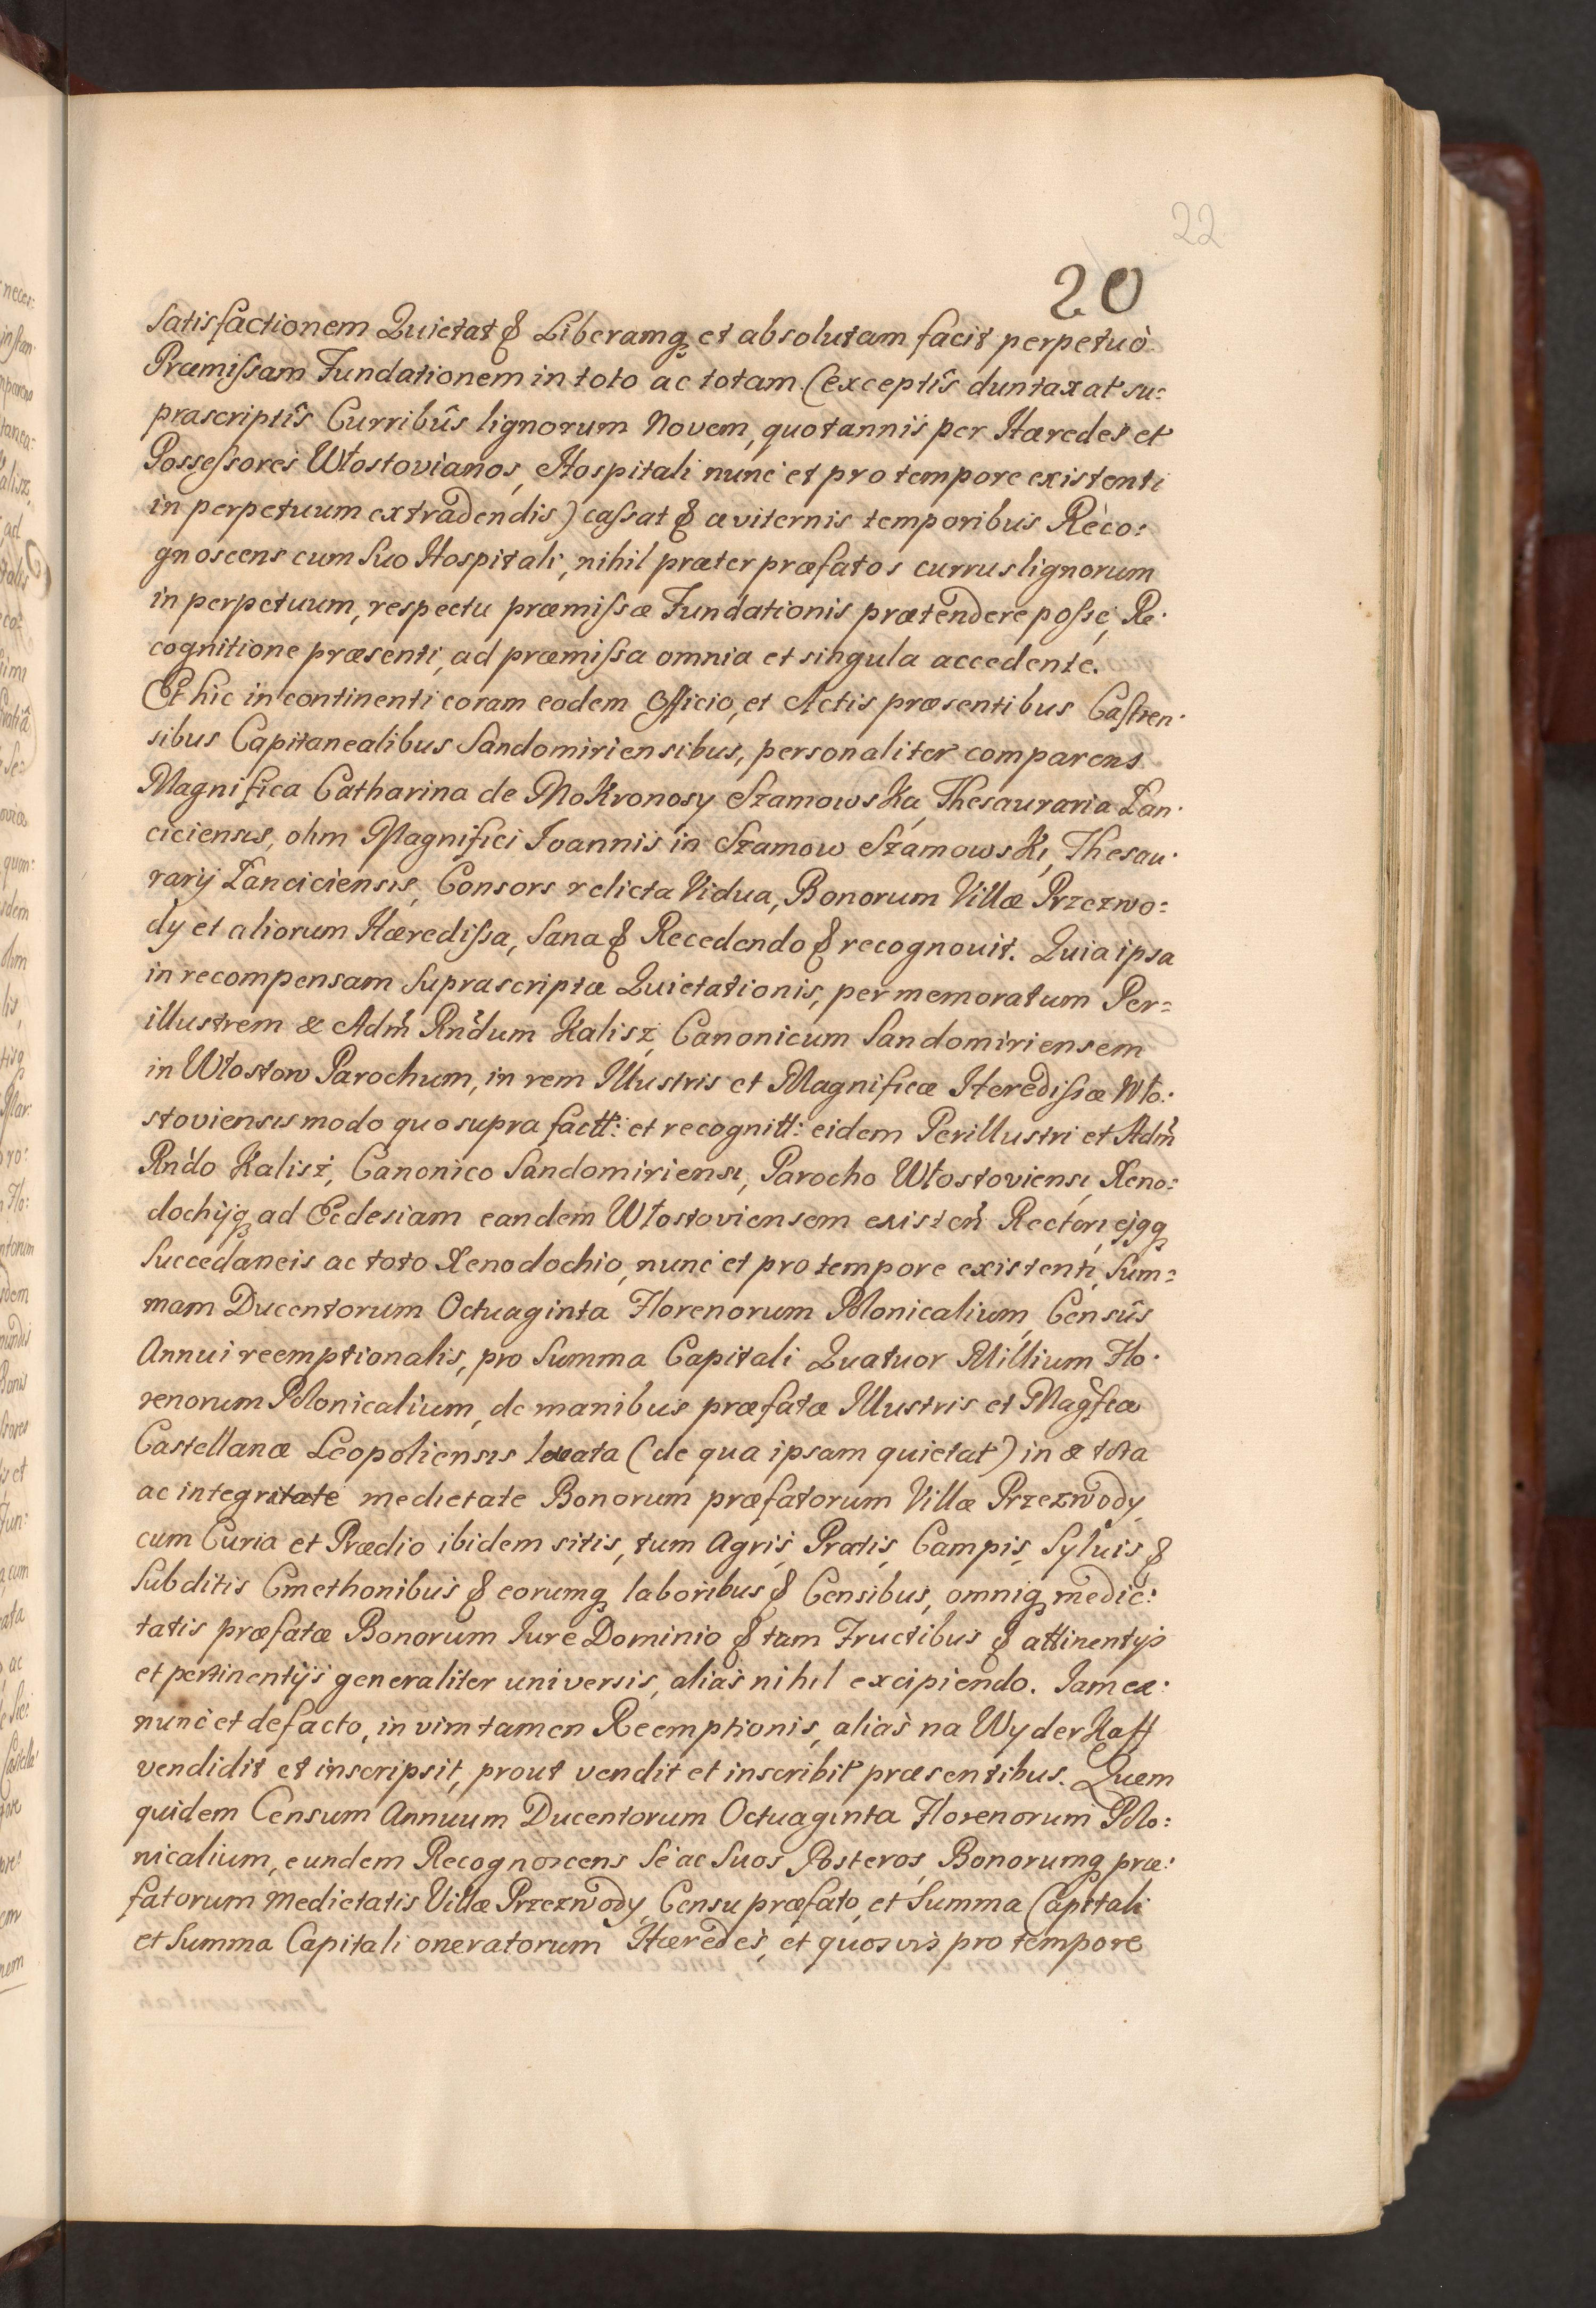 22
20
Satisfactionem Quietat & Liberamq; et absolutam facit perpetuò
Præmissam Fundationem in toto ac totam (exceptîs duntaxat su=
prascriptîs Curribûs lignorum Novem, quotannis per Hæredes et
Possessores Włostovianos, Hospitali nunc et pro tempore existenti
in perpetuum extradendis) cassat & æviternis temporibus Reco:
gnoscens cum Suo Hospitali, nihil præter præfatos currus lignorum
in perpetuum, respectu præmissæ Fundationis prætendere posse, Re:
cognitione præsenti, ad præmissa omnia et singula accedente.
Et hic in continenti coram eodem Officio, et Actis præsentibus Castren:
sibus Capitanealibus Sandomiriensibus, personaliter comparens
Magnifica Catharina de Mokronosy Szamowska, Thesauraria Lan:
ciciensis, olim Magnifici Joannis in Szamow Szamowski, Thesau:
rarij Lanciciensis, Consors relicta Vidua, Bonorum Villæ Przezwo=
dy et aliorum Hæredissa, Sana & Recedendo & recognovit. Quia ipsa
in recompensam Suprascriptæ Quietationis, per memoratum Per=
illustrem & Adm̃ Rñdum Kalisz, Canonicum Sandomiriensem
in Włostow Parochum, in rem Illustris et Magnificæ Heredissæ Wło:
stoviensis modo quo supra factt: et recognitt: eidem Perillustri et Adm̃
Rñdo Kalisz, Canonico Sandomiriensi, Parocho Włostoviensi, Xeno=
dochijq; ad Ecclesiam eandem Włostoviensem existeñ Rectori, ejqq;
Succedaneis ac toto Xenodochio, nunc et pro tempore existenti, Sum=
mam Ducentorum Octuaginta Florenorum Polonicalium, Censûs
Annui reemptionalis, pro Summa Capitali Quatuor Millium Flo:
renorum Polonicalium, de manibus præfatæ Illustris et Magfcæ
Castellanæ Leopoliensis levata (de qua ipsam quietat) in & tota
ac integritate medietate Bonorum præfatorum Villæ Przezwody
cum Curia et Prædio ibidem sitis, tum Agris, Pratis, Campis, Sylvis &
Subditis Cmethonibus & eorumq; laboribus & Censibus, omniq; medie:
tatis præfatæ Bonorum Jure Dominio & tam Fructibus & attinentijs
et pertinentijs generaliter universis, alias nihil excipiendo. Jam ex:
nunc et de facto, in vim tamen Reemptionis, alias na Wyderkaff
vendidit et inscripsit, prout vendit et inscribit præsentibus. Quem
quidem Censum Annuum Ducentorum Octuaginta Florenorum Polo:
nicalium, eundem Recognoscens Se ac Suos Posteros, Bonorumq; præ:
fatorum medietatis Villæ Przezwody, Censu præfato, et Summa Capitali
et Summa Capitali oneratorum Hæredes, et quosvis pro tempore